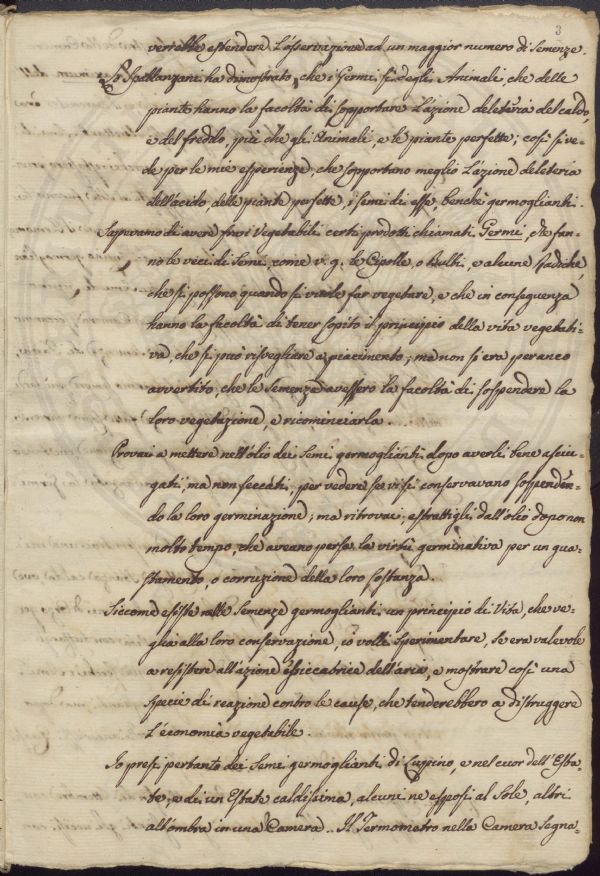 3
verrebbe estendere l'osservazione ad un maggior numero di Semenze.
Spallanzani ha dimostrato, che i Germi sì degli Animali, che delle
piante hanno la facoltà di sopportare l'azione deleteria del caldo,
e del freddo, più che gli Animali, e le piante perfette; così si ve-
de per le mie esperienze, che sopportano meglio l'azione deleteria
dell'acido, delle piante perfette, i semi di esse, benchè germoglianti.
Sapevamo di avere frai Vegetabili certi prodotti chiamati Germi, che fan-
no le veci di Semi, come v. g. le Cipolle, o Bulbi, e alcune Radiche,
che si possono quando si vuole far vegetare, e che in conseguenza
hanno la facoltà di tener sopito il principio della vita vegetati-
va, che si può risvegliare a piacimento; ma non si era per anco
avvertito, che le Semenze avessero la facoltà di sospendere la
loro vegetazione, e ricominciarla.
Provai a mettere nell'olio dei Semi germoglianti dopo averli bene asciu-
gati, ma non seccati, per vedere se vi si conservavano sospenden-
do la loro germinazione; ma ritrovai, estrattigli dall'olio dopo non
molto tempo, che aveano persa la virtù germinativa per un gua-
stamento, o corruzione della loro sostanza.
Siccome esiste nelle Semenze germoglianti un principio di Vita, che ve-
glia alla loro conservazione, io volli sperimentare, se era valevole
a resistere all'azione essiccatrice dell'aria, e mostrare così una
specie di reazione contro le cause, che tenderebbero a distruggere
l'economia vegetabile.
Io presi pertanto dei Semi germoglianti di Luppino, e nel cuor dell'Esta-
te, e di un Estate caldissima, alcuni ne esposi al Sole, altri
all'ombra in una Camera. Il Termometro nella Camera segna-